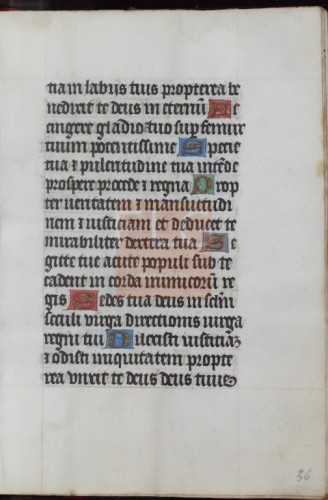 tiam labijs tuis propterea be
nedixit te deus in eternū Ac
cingere gladio tuo sup femur
tuum potentissime Specie
tua & pulcritudine tua intēde
prospere procede & regna Prop
ter ueritatem & mansuetudi
nem & iusticiam et deducet te
mirabiliter dextera tua Sa
gitte tue acute populi sub te
cadent in corda inimicorū re
gis Sedes tua deus in sclm̄
seculi uirga directionis uirga
regni tui Dilexisti iusticiaz
& odisti iniquitatem propte
rea vnxit te deus deus tuus
36